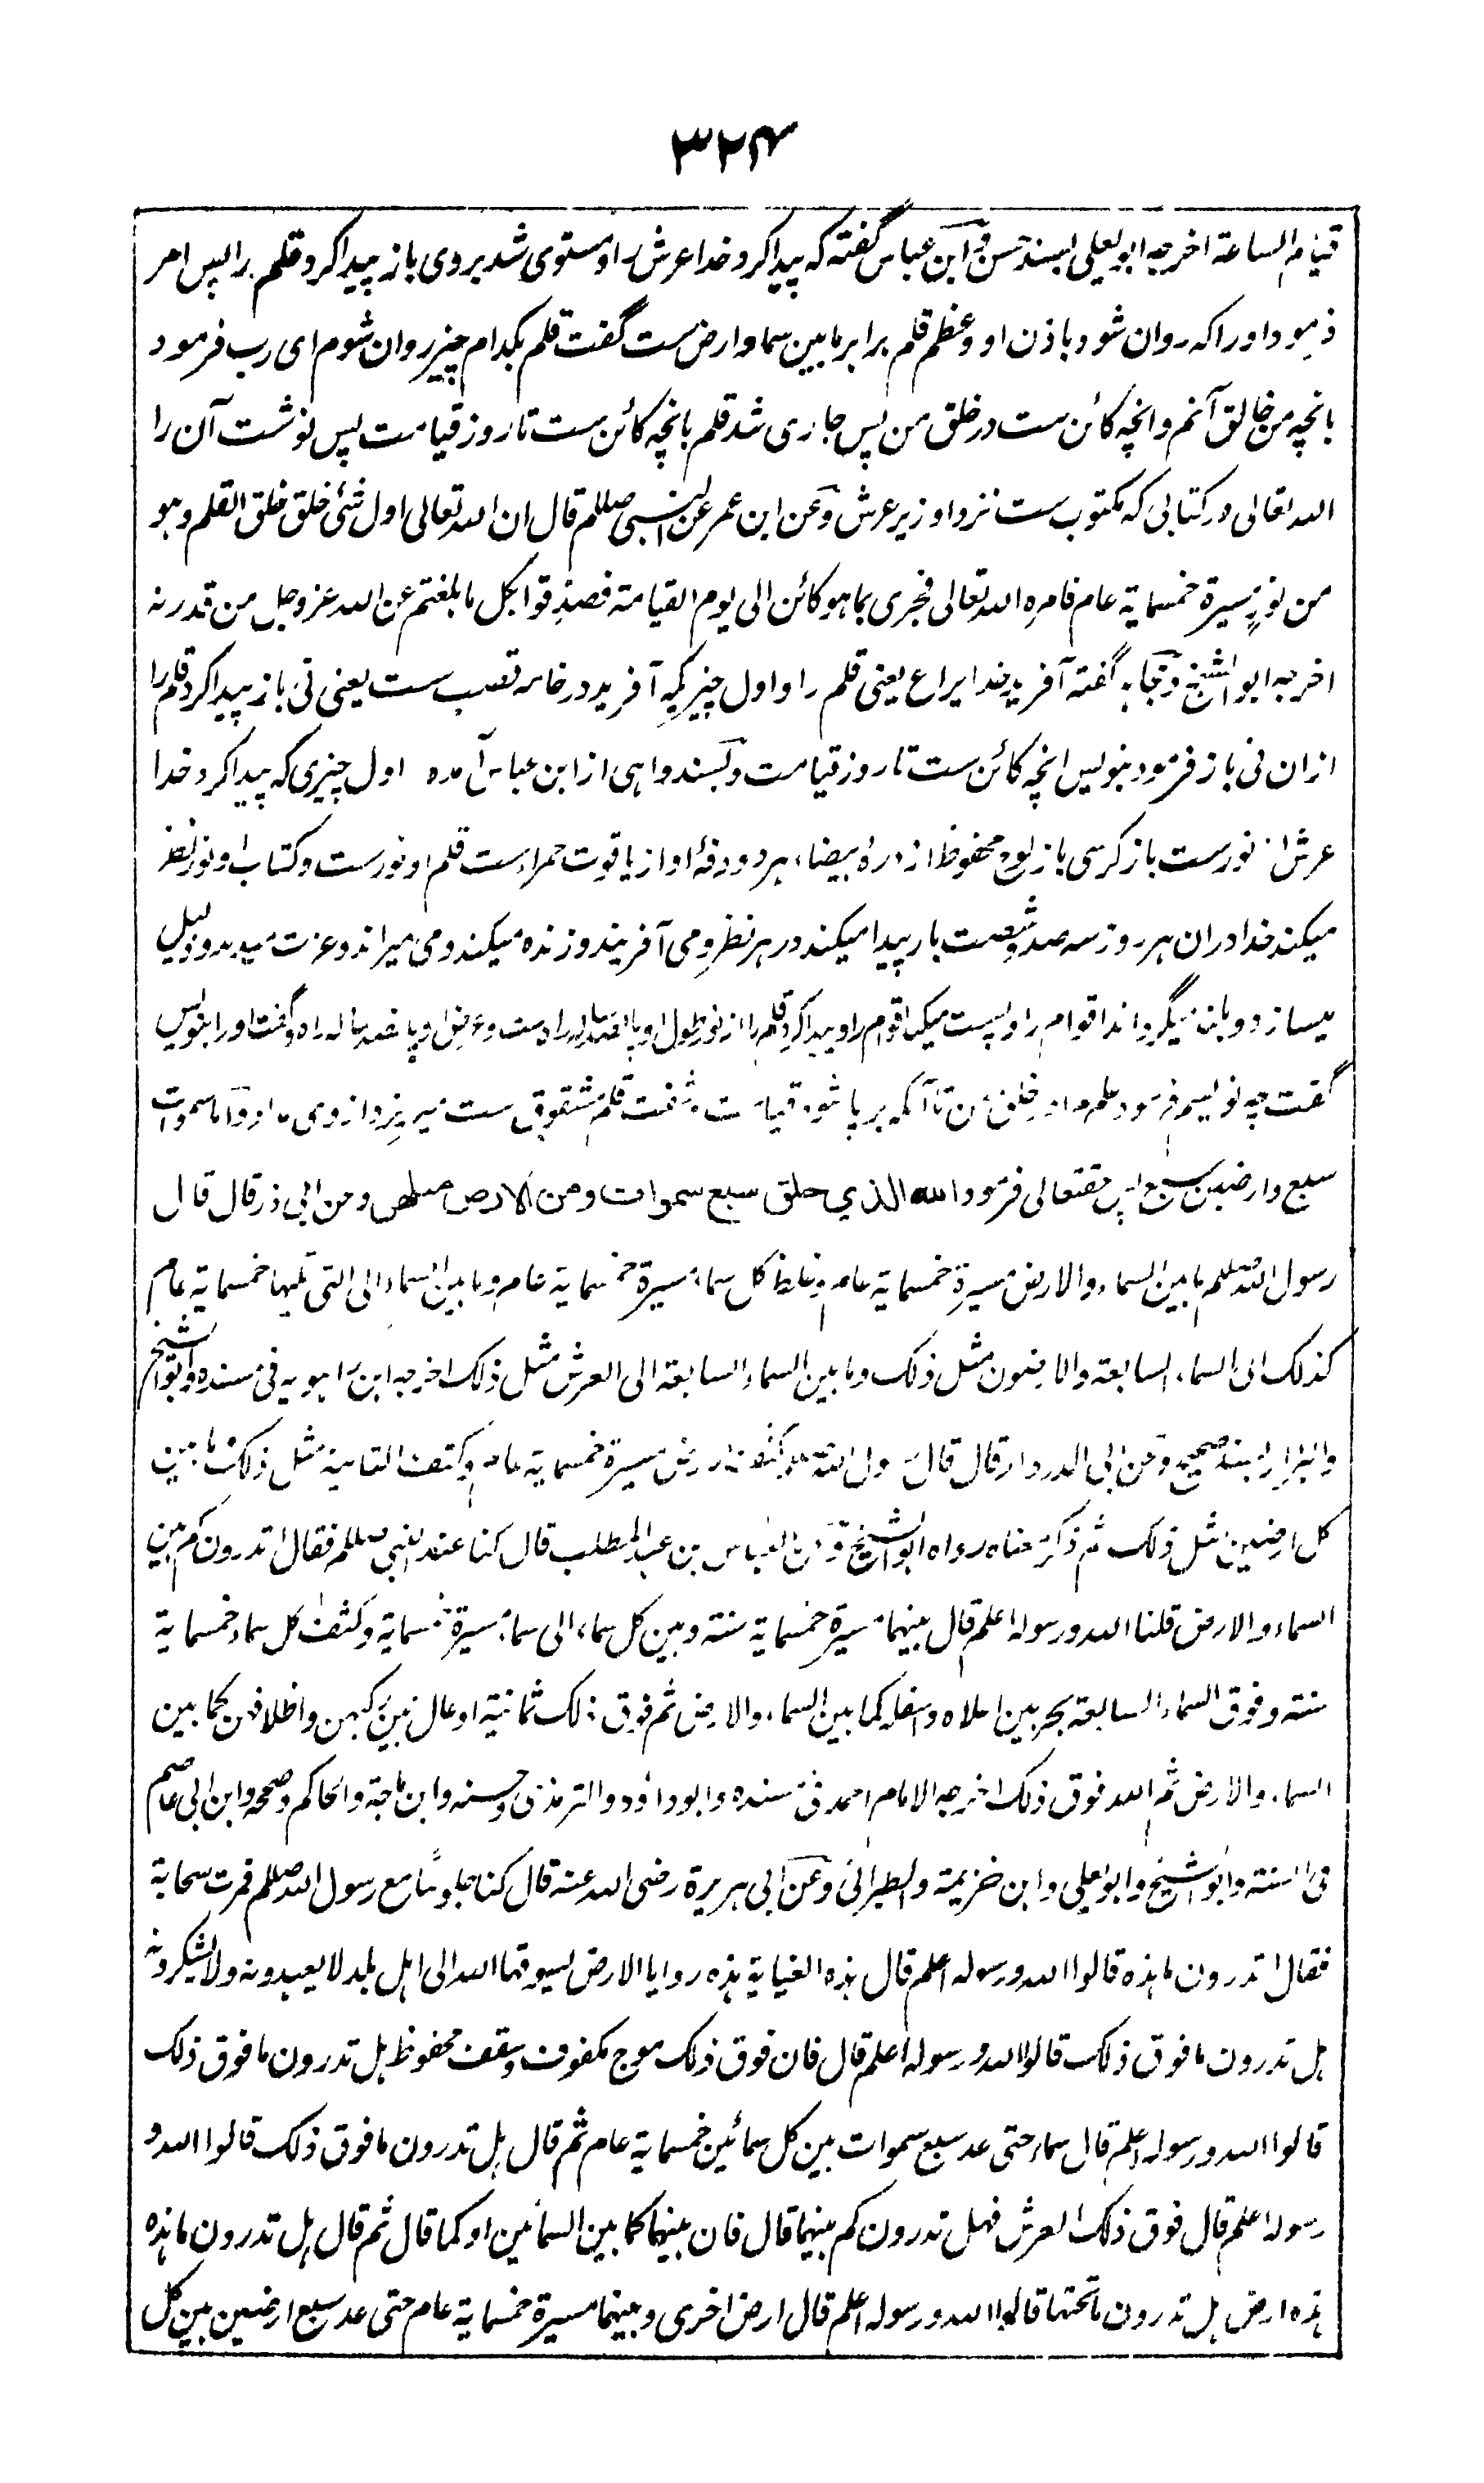 ۳۲۴
قیام الساعة اخرجه ابو یعلی بسند حسن و ابن عباس گفته که پیدا کرد خدا عرش را و مستوی شد بروی باز پیدا کرد قلم را پس امر
فرمود او را که روان شود باذن او و عظم قلم برابر مابین سما و ارض ست گفت قلم بکدام چیز روان شوم ای رب فرمود
بانچه من خالق آنم و انچه کائن ست در خلق من پس جاری شد قلم بانچه کائن ست تا روز قیامت پس نوشت آن را
الله تعالی در کتابی که مکتوب ست نزد او زیر عرش و عن ابن عمر عن النبی صللم قال ان الله تعالی اول شئ خلق خلق القلم و هو
من نور مسیرة خمسمایة عام فامره الله تعالی فجری بما هو کائن الی یوم القیامة فصدقوا بکل ما بلغتم عن الله عز وجل من قدرته
اخرجه ابو الشیخ و مجاهد گفته آفرید خدا یراع یعنی قلم را و اول چیزیکه آفرید در خامه قصب ست یعنی نی باز پیدا کرد قلم را
ازان نی باز فرمود بنویس انچه کائن ست تا روز قیامت و بسند واهی از ابن عباس آمده اول چیزی که پیدا کرد خدا
عرش از نور ست باز کرسی باز لوح محفوظ از درهٔ بیضاء هر دو دفهٔ او از یاقوت حمراء ست قلم او نور ست و کتاب او نور نظر
میکند خدا دران هر روز سه صد و شصت بار پیدا میکند در هر نظر و می آفریند و زنده میکند و می میراند و عزت میدهد و ذلیل
میسازد و بلند میگرداند اقوام را و پست میکند اقوام را و پیدا کرد قلم را از نور طول او پانصد ساله راه ست و عرض او پانصد ساله راه و گفت او را بنویس
گفت چه نویسم فرمود علم من در خلق من تا آنکه برپا شود قیامت و گفت قلم مشقوق ست میریزد از وی مداد و اما سموات
سبع و ارضین سبع پس حقتعالی فرمود الله الذي خلق سبع سموات ومن الارض مثلهن و عن ابی ذر قال قال
رسول الله صللم ما بین السماء والارض مسیرة خمسمایة عام و غلظ کل سماء مسیرة خمسمایة عام و ما بین السماء الی التی تلیها خمسمایة عام
کذلک الی السماء السابعة والارضون مثل ذلک و ما بین السماء السابعة الی العرش مثل ذلک اخرجه ابن راهویه فی مسنده و ابو الشیخ
والبزار بسند صحیح و عن ابی الدرداء قال قال رسول الله صللم کثف الارض مسیرة خمسمایة عام و کثف الثانیة مثل ذلک و ما بین
کل ارضین مثل ذلک ثم ذکر معناه رواه ابو الشیخ و عن العباس بن عبد المطلب قال کنا عند النبی صللم فقال اتدرون کم بین
السماء والارض قلنا الله و رسوله اعلم قال بینهما مسیرة خمسمایة سنة و بین کل سماء الی سماء مسیرة خمسمایة و کثف کل سماء خمسمایة
سنة و فوق السماء السابعة بحر بین اعلاه و اسفله کما بین السماء والارض ثم فوق ذلک ثمانیة اوعال بین رکبهن و اظلافهن کما بین
السماء والارض ثم الله فوق ذلک اخرجه الامام احمد فی مسنده و ابو داؤد والترمذی و حسنه و ابن ماجة والحاکم و صححه و ابن ابی عاصم
فی السنة و ابو الشیخ و ابو یعلی و ابن خزیمة والطبرانی و عن ابی هریرة رضی الله عنه قال کنا جلوسًا مع رسول الله صللم فمرت سحابة
فقال اتدرون ما هذه قالوا الله و رسوله اعلم قال هذه الغیایة هذه روایا الارض یسوقها الله الی اهل بلد لا یعبدونه ولا یشکرونه
هل تدرون ما فوق ذلک قالوا الله و رسوله اعلم قال فان فوق ذلک موج مکفوف و سقف محفوظ هل تدرون ما فوق ذلک
قالوا الله و رسوله اعلم قال سماء حتی عد سبع سموات بین کل سمائین خمسمایة عام ثم قال هل تدرون ما فوق ذلک قالوا الله و
رسوله اعلم قال فوق ذلک العرش فهل تدرون کم بینهما قال فان بینهما کما بین السمائین او کما قال ثم قال هل تدرون ما هذه
هذه ارض هل تدرون ما تحتها قالوا الله و رسوله اعلم قال ارض اخری و بینهما مسیرة خمسمایة عام حتی عد سبع ارضین بین کل